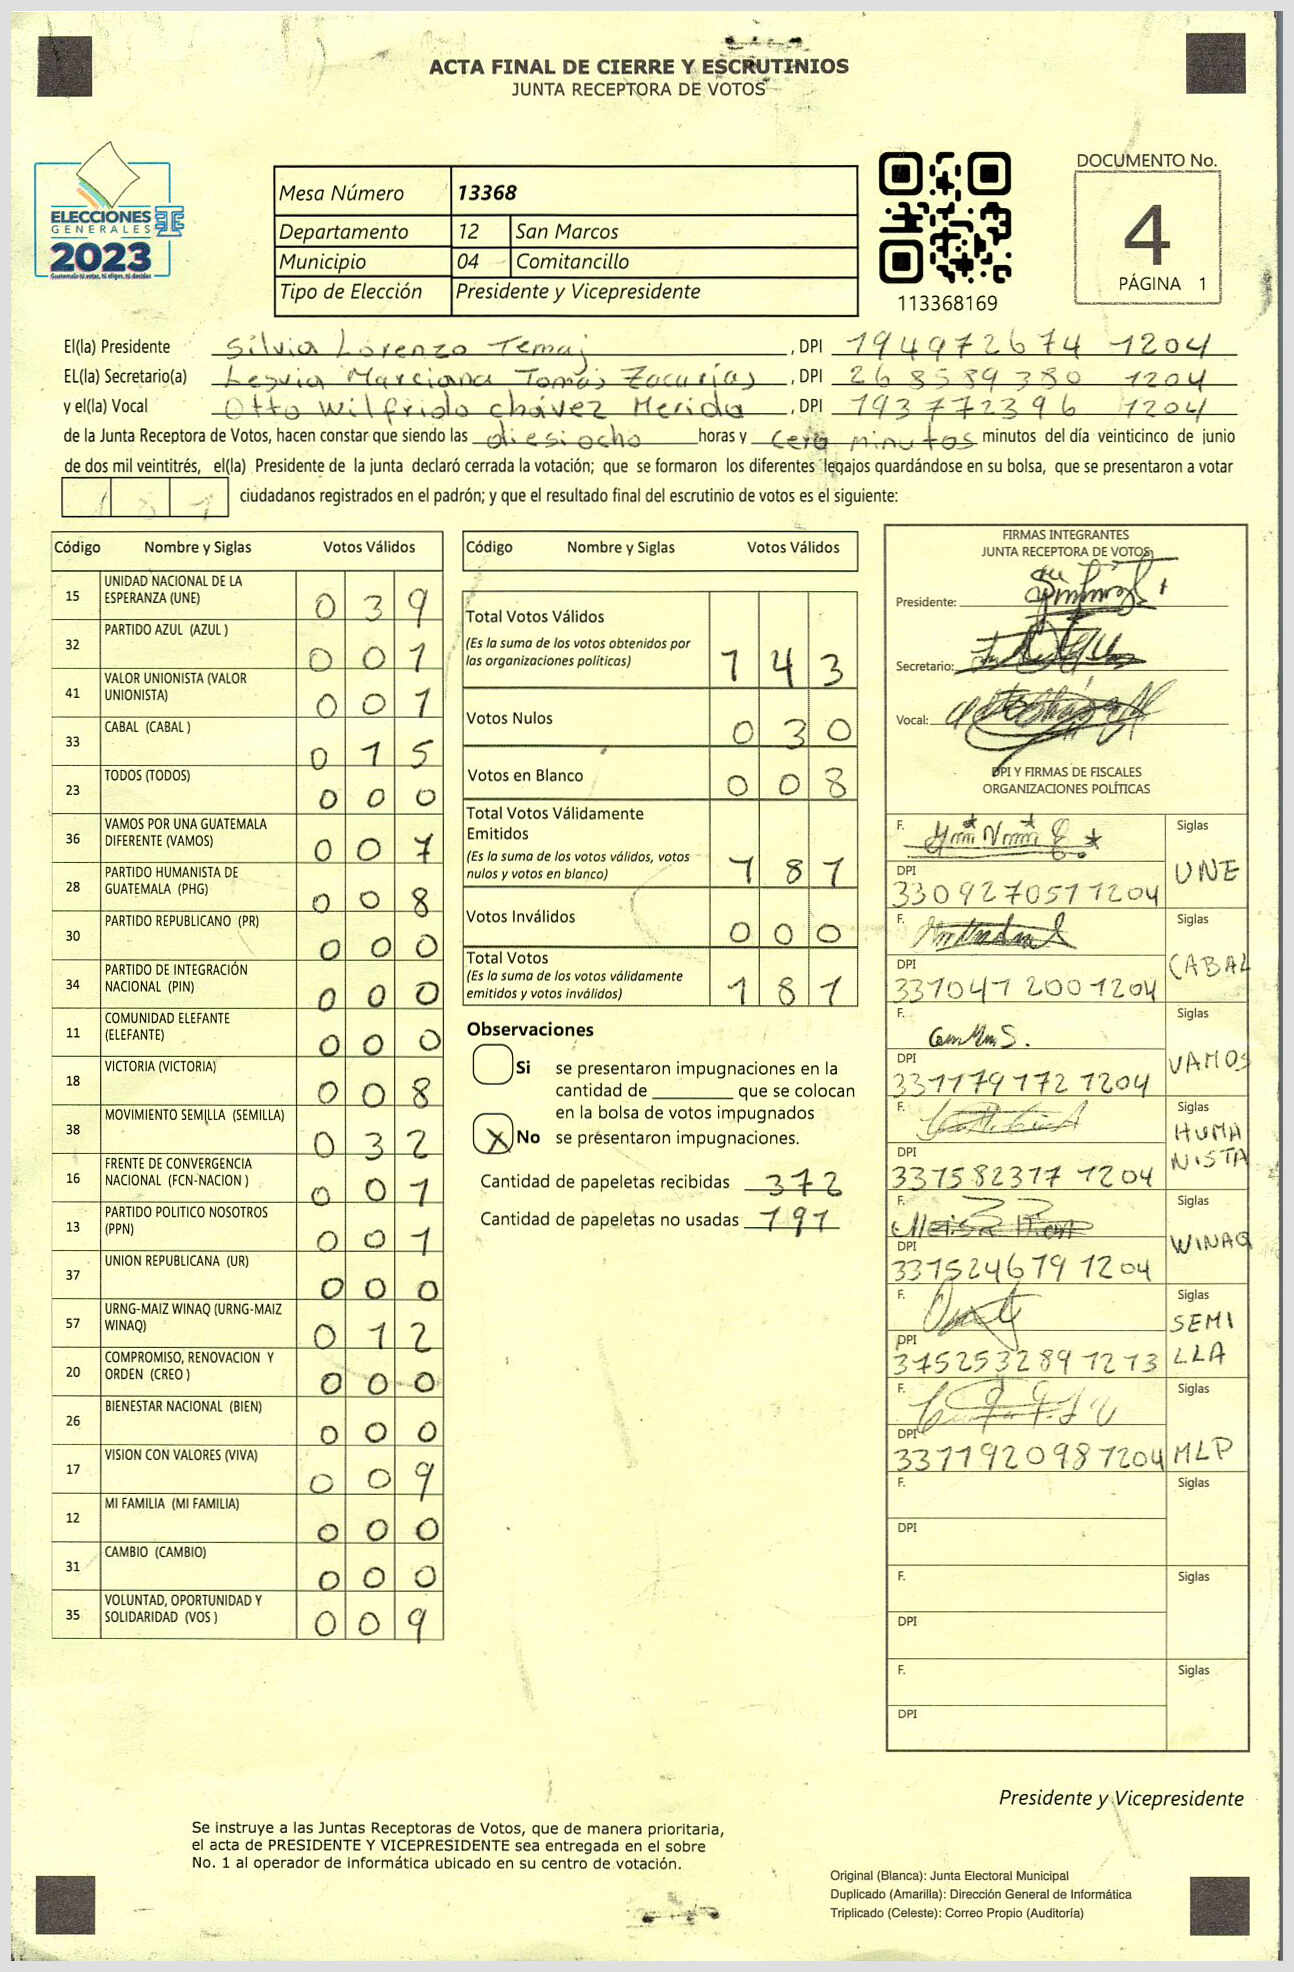 ACTA FINAL DE CIERRE Y ESCRUTINIOS
JUNTA RECEPTORA DE VOTOS
ELECCIONES
GENERALES
2023
Mesa Número 13368
Departamento 12 San Marcos
Municipio 04 Comitancillo
Tipo de Elección Presidente y Vicepresidente
113368169
DOCUMENTO No.
4
PÁGINA 1
El(la) Presidente Silvia Lorenzo Temaj, DPI 194972674 1204
EL(la) Secretario(a) Lesvia Marciana Tomás Zacarías, DPI 268589380 1204
y el(la) Vocal Otto Wilfrido Chávez Merida, DPI 193772396 1204
de la Junta Receptora de Votos, hacen constar que siendo las diesiocho horas y cero minutos minutos del día veinticinco de junio
de dos mil veintitrés, el(la) Presidente de la junta declaró cerrada la votación; que se formaron los diferentes legajos quardándose en su bolsa, que se presentaron a votar
181 ciudadanos registrados en el padrón; y que el resultado final del escrutinio de votos es el siguiente:
Código Nombre y Siglas Votos Válidos
15 UNIDAD NACIONAL DE LA ESPERANZA (UNE) 039
32 PARTIDO AZUL (AZUL ) 001
41 VALOR UNIONISTA (VALOR UNIONISTA) 001
33 CABAL (CABAL ) 015
23 TODOS (TODOS) 000
36 VAMOS POR UNA GUATEMALA DIFERENTE (VAMOS) 007
28 PARTIDO HUMANISTA DE GUATEMALA (PHG) 008
30 PARTIDO REPUBLICANO (PR) 000
34 PARTIDO DE INTEGRACIÓN NACIONAL (PIN) 000
11 COMUNIDAD ELEFANTE (ELEFANTE) 000
18 VICTORIA (VICTORIA) 008
38 MOVIMIENTO SEMILLA (SEMILLA) 032
16 FRENTE DE CONVERGENCIA NACIONAL (FCN-NACION ) 001
13 PARTIDO POLITICO NOSOTROS (PPN) 001
37 UNION REPUBLICANA (UR) 000
57 URNG-MAIZ WINAQ (URNG-MAIZ WINAQ) 012
20 COMPROMISO, RENOVACION Y ORDEN (CREO ) 000
26 BIENESTAR NACIONAL (BIEN) 000
17 VISION CON VALORES (VIVA) 009
12 MI FAMILIA (MI FAMILIA) 000
31 CAMBIO (CAMBIO) 000
35 VOLUNTAD, OPORTUNIDAD Y SOLIDARIDAD (VOS ) 009
Código Nombre y Siglas Votos Válidos
Total Votos Válidos 143
(Es la suma de los votos obtenidos por
las organizaciones políticas)
Votos Nulos 030
Votos en Blanco 008
Total Votos Válidamente
Emitidos 181
(Es la suma de los votos válidos, votos
nulos y votos en blanco)
Votos Inválidos 000
Total Votos 181
(Es la suma de los votos válidamente
emitidos y votos inválidos)
Observaciones
Si se presentaron impugnaciones en la
cantidad de ________ que se colocan
en la bolsa de votos impugnados
X No se présentaron impugnaciones.
Cantidad de papeletas recibidas 372
Cantidad de papeletas no usadas 191
FIRMAS INTEGRANTES
JUNTA RECEPTORA DE VOTOS
Presidente:
Secretario:
Vocal:
DPI Y FIRMAS DE FISCALES
ORGANIZACIONES POLÍTICAS
F. Siglas UNE
DPI 330927051 1204
F. Siglas CABAL
DPI 331041 200 1204
F. Siglas VAMOS
DPI 331179172 1204
F. Siglas HUMANISTA
DPI 331582317 1204
F. Siglas WINAQ
DPI 331524679 1204
F. Siglas SEMILLA
DPI 375253289 1213
F. Siglas MLP
DPI 331192098 1204
F. Siglas
DPI
F. Siglas
DPI
F. Siglas
DPI
Presidente y Vicepresidente
Se instruye a las Juntas Receptoras de Votos, que de manera prioritaria,
el acta de PRESIDENTE Y VICEPRESIDENTE sea entregada en el sobre
No. 1 al operador de informática ubicado en su centro de votación.
Original (Blanca): Junta Electoral Municipal
Duplicado (Amarilla): Dirección General de Informática
Triplicado (Celeste): Correo Propio (Auditoría)